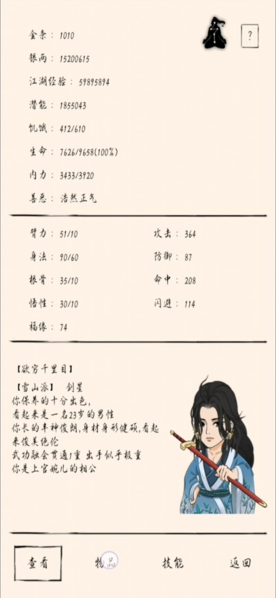 金条： 1010
?
银两： 15200615
江湖经验： 59895894
潜能： 1855043
饥饿： 412/610
生命： 7626/9658(100%)
内力： 3433/3920
善恶： 浩然正气
臂力： 51/10 攻击： 364
身法： 90/60 防御： 87
根骨： 35/10 命中： 208
悟性： 30/10 闪避： 114
福缘： 74
【欲穷千里目】
【雪山派】 剑星
你保养的十分出色，
看起来是一名23岁的男性
你长的丰神俊朗，身材身形健硕，看起
来俊美绝伦
武功融会贯通1重 出手似乎极重
你是上官婉儿的相公
查看 物品 技能 返回